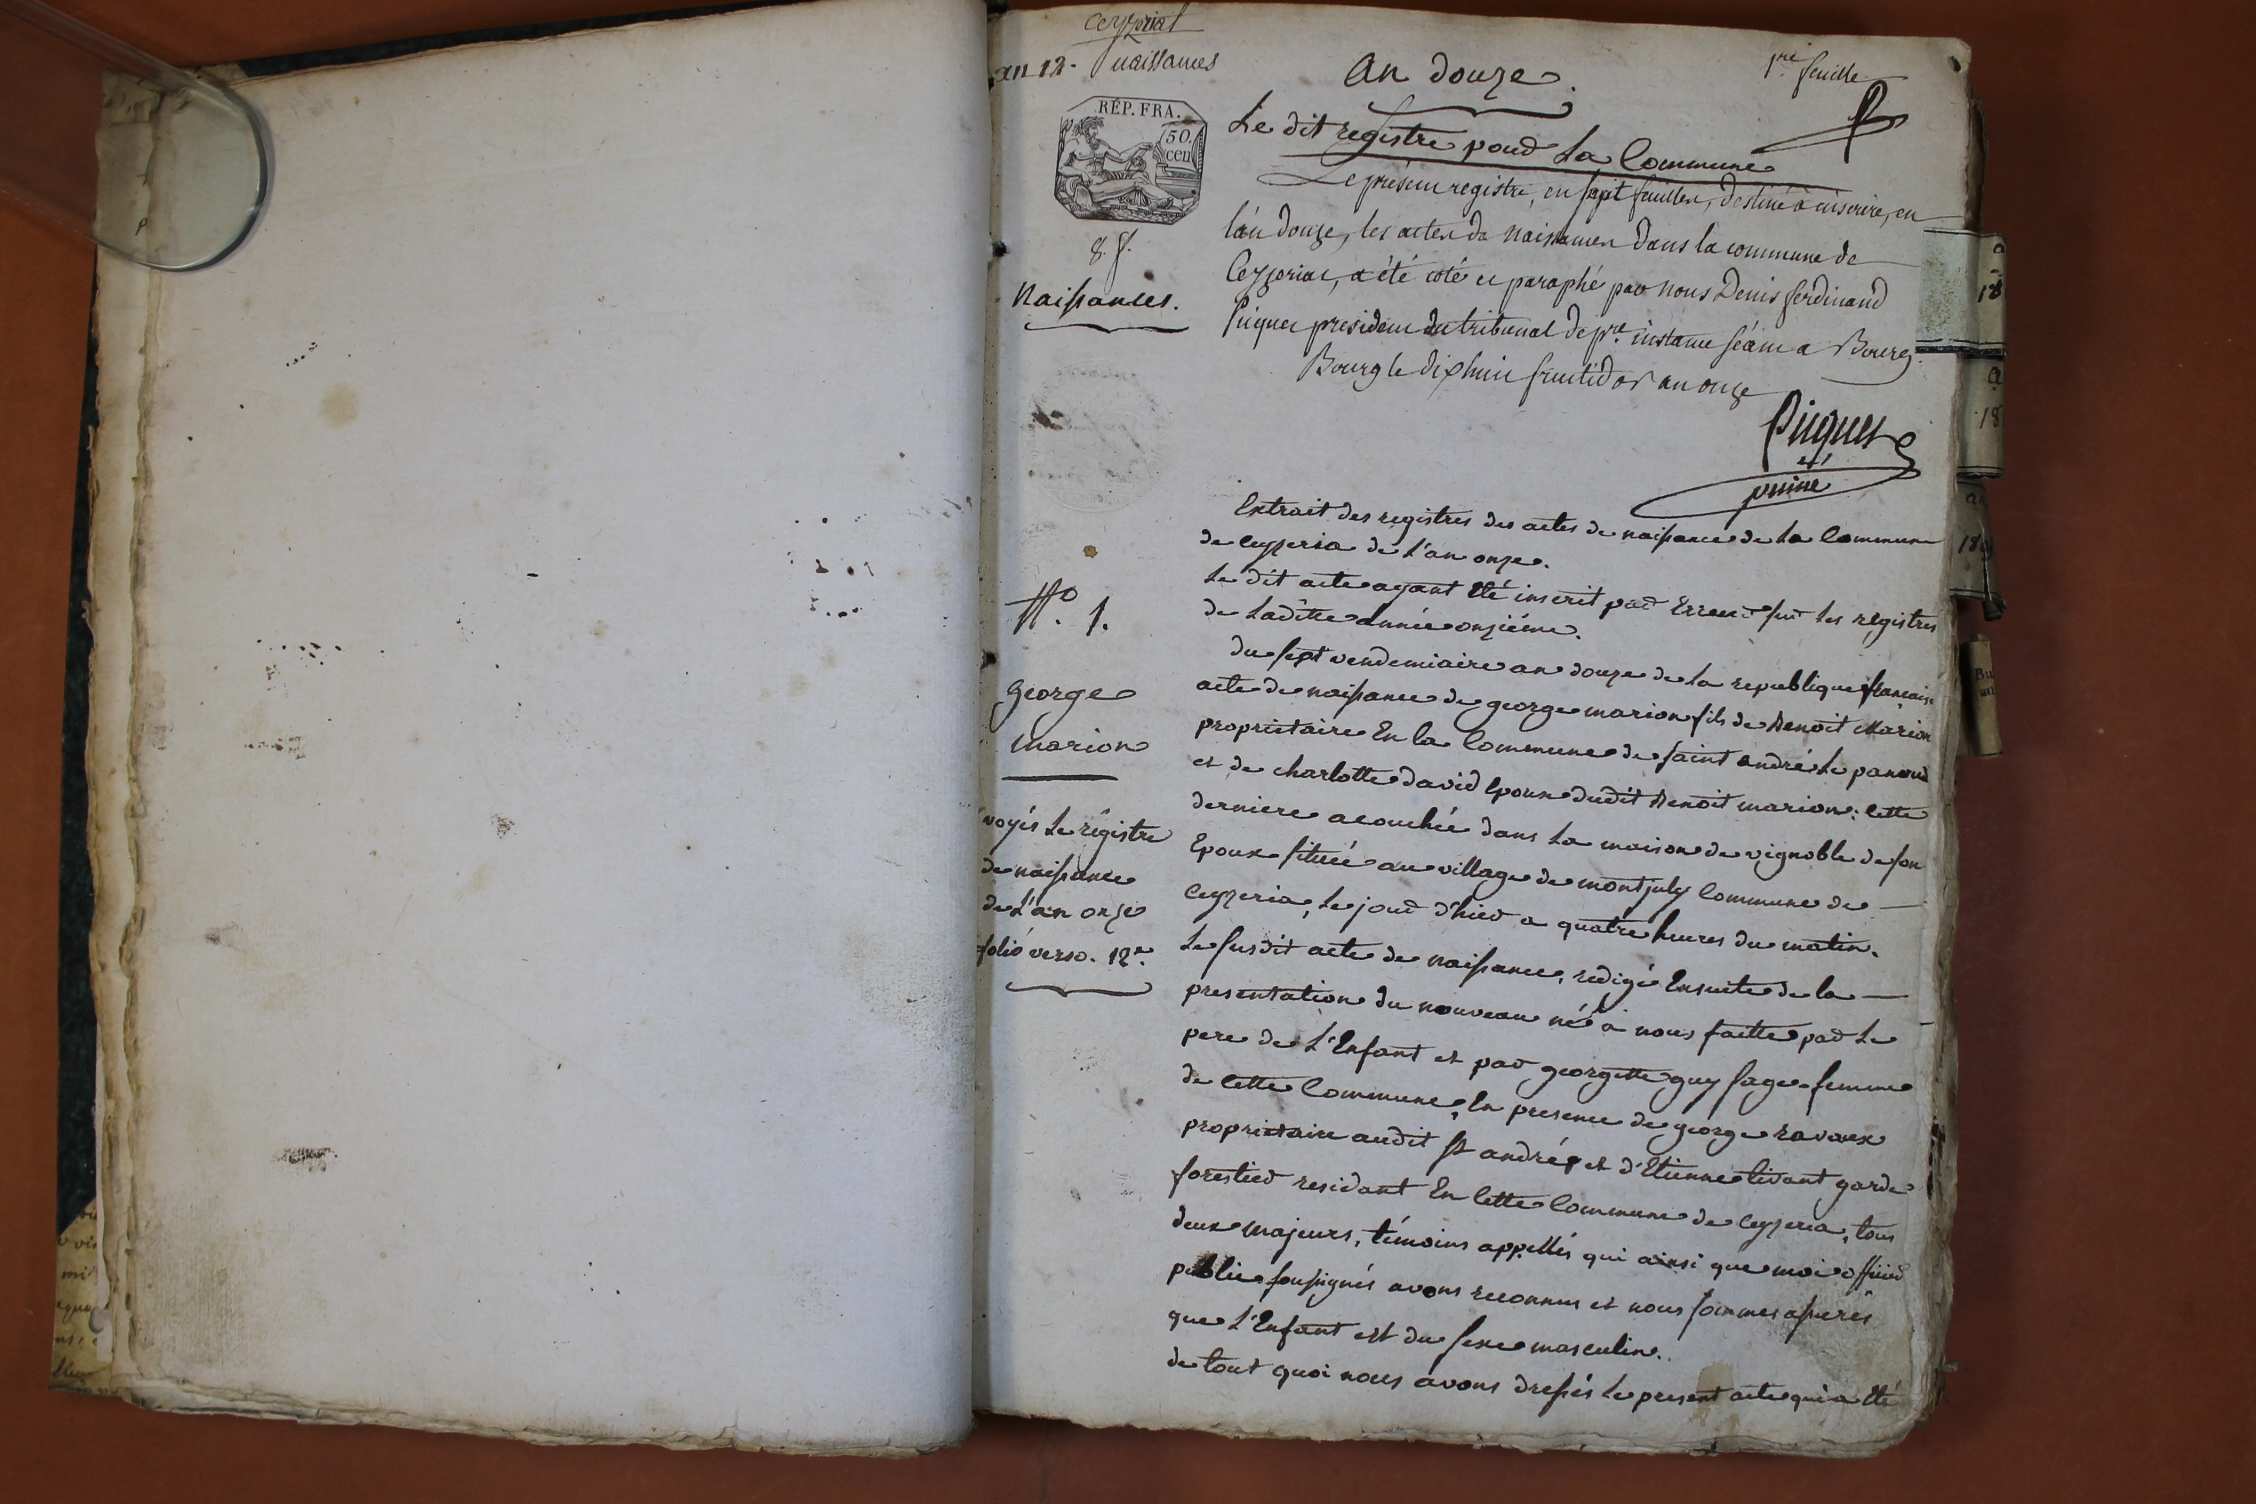 Ceyzeriat
an 12. naissances
an douze.
1re feuille
RÉP. FRA.
50.
cen
8. f.
Naissances.
Le dit registre pour La Commune
Le présent registre, en sept feuilles, destiné à inscrire, en
l'an douze, les actes de naissances dans la commune de
Ceyzeriat, a été coté et paraphé par nous Denis ferdinand
president du tribunal de pre. instance séant a Bourg.
Bourg le dix huit fructidor an onze
Extrait des registres des actes de naissance de La Commune
de Ceyzeria de L'an onze.
Le dit acte ayant Eté inscrit par Erreur sur Les registres
de Laditte année onzième.
N.o 1.
George
Marion
voyés Le régistre
de naissance
de L'an onze
folio verso. 12e.
du sept vendemiaire an douze de La republique française
acte de naissance de george marion fils de Benoit Marion
propriétaire En la Commune de saint andré Le panoud
et de charlotte david Epouse dudit Benoit marion: cette
derniere acouchée dans La maison de vignoble de son
Epoux située au village de montjuly Commune de
Ceyzeria, Le jour d'hier a quatre heures du matin.
Le susdit acte de naissance, redigé Ensuite de la
presentation du nouveau né à nous faitte par Le
pere de L'Enfant et par georgette guy sage-femme
de cette Commune, En presence de george ravoux
propriétaire audit St andré, et d'Etienne livant garde
forestier residant En cette Commune de Ceyzeria, tous
deux majeurs, témoins appellés qui ainsi que moi officier
public soussignés avons reconnus et nous sommes assurés
que L'Enfant est du sexe masculin.
de tout quoi nous avons dressés Le present acte qui a Eté